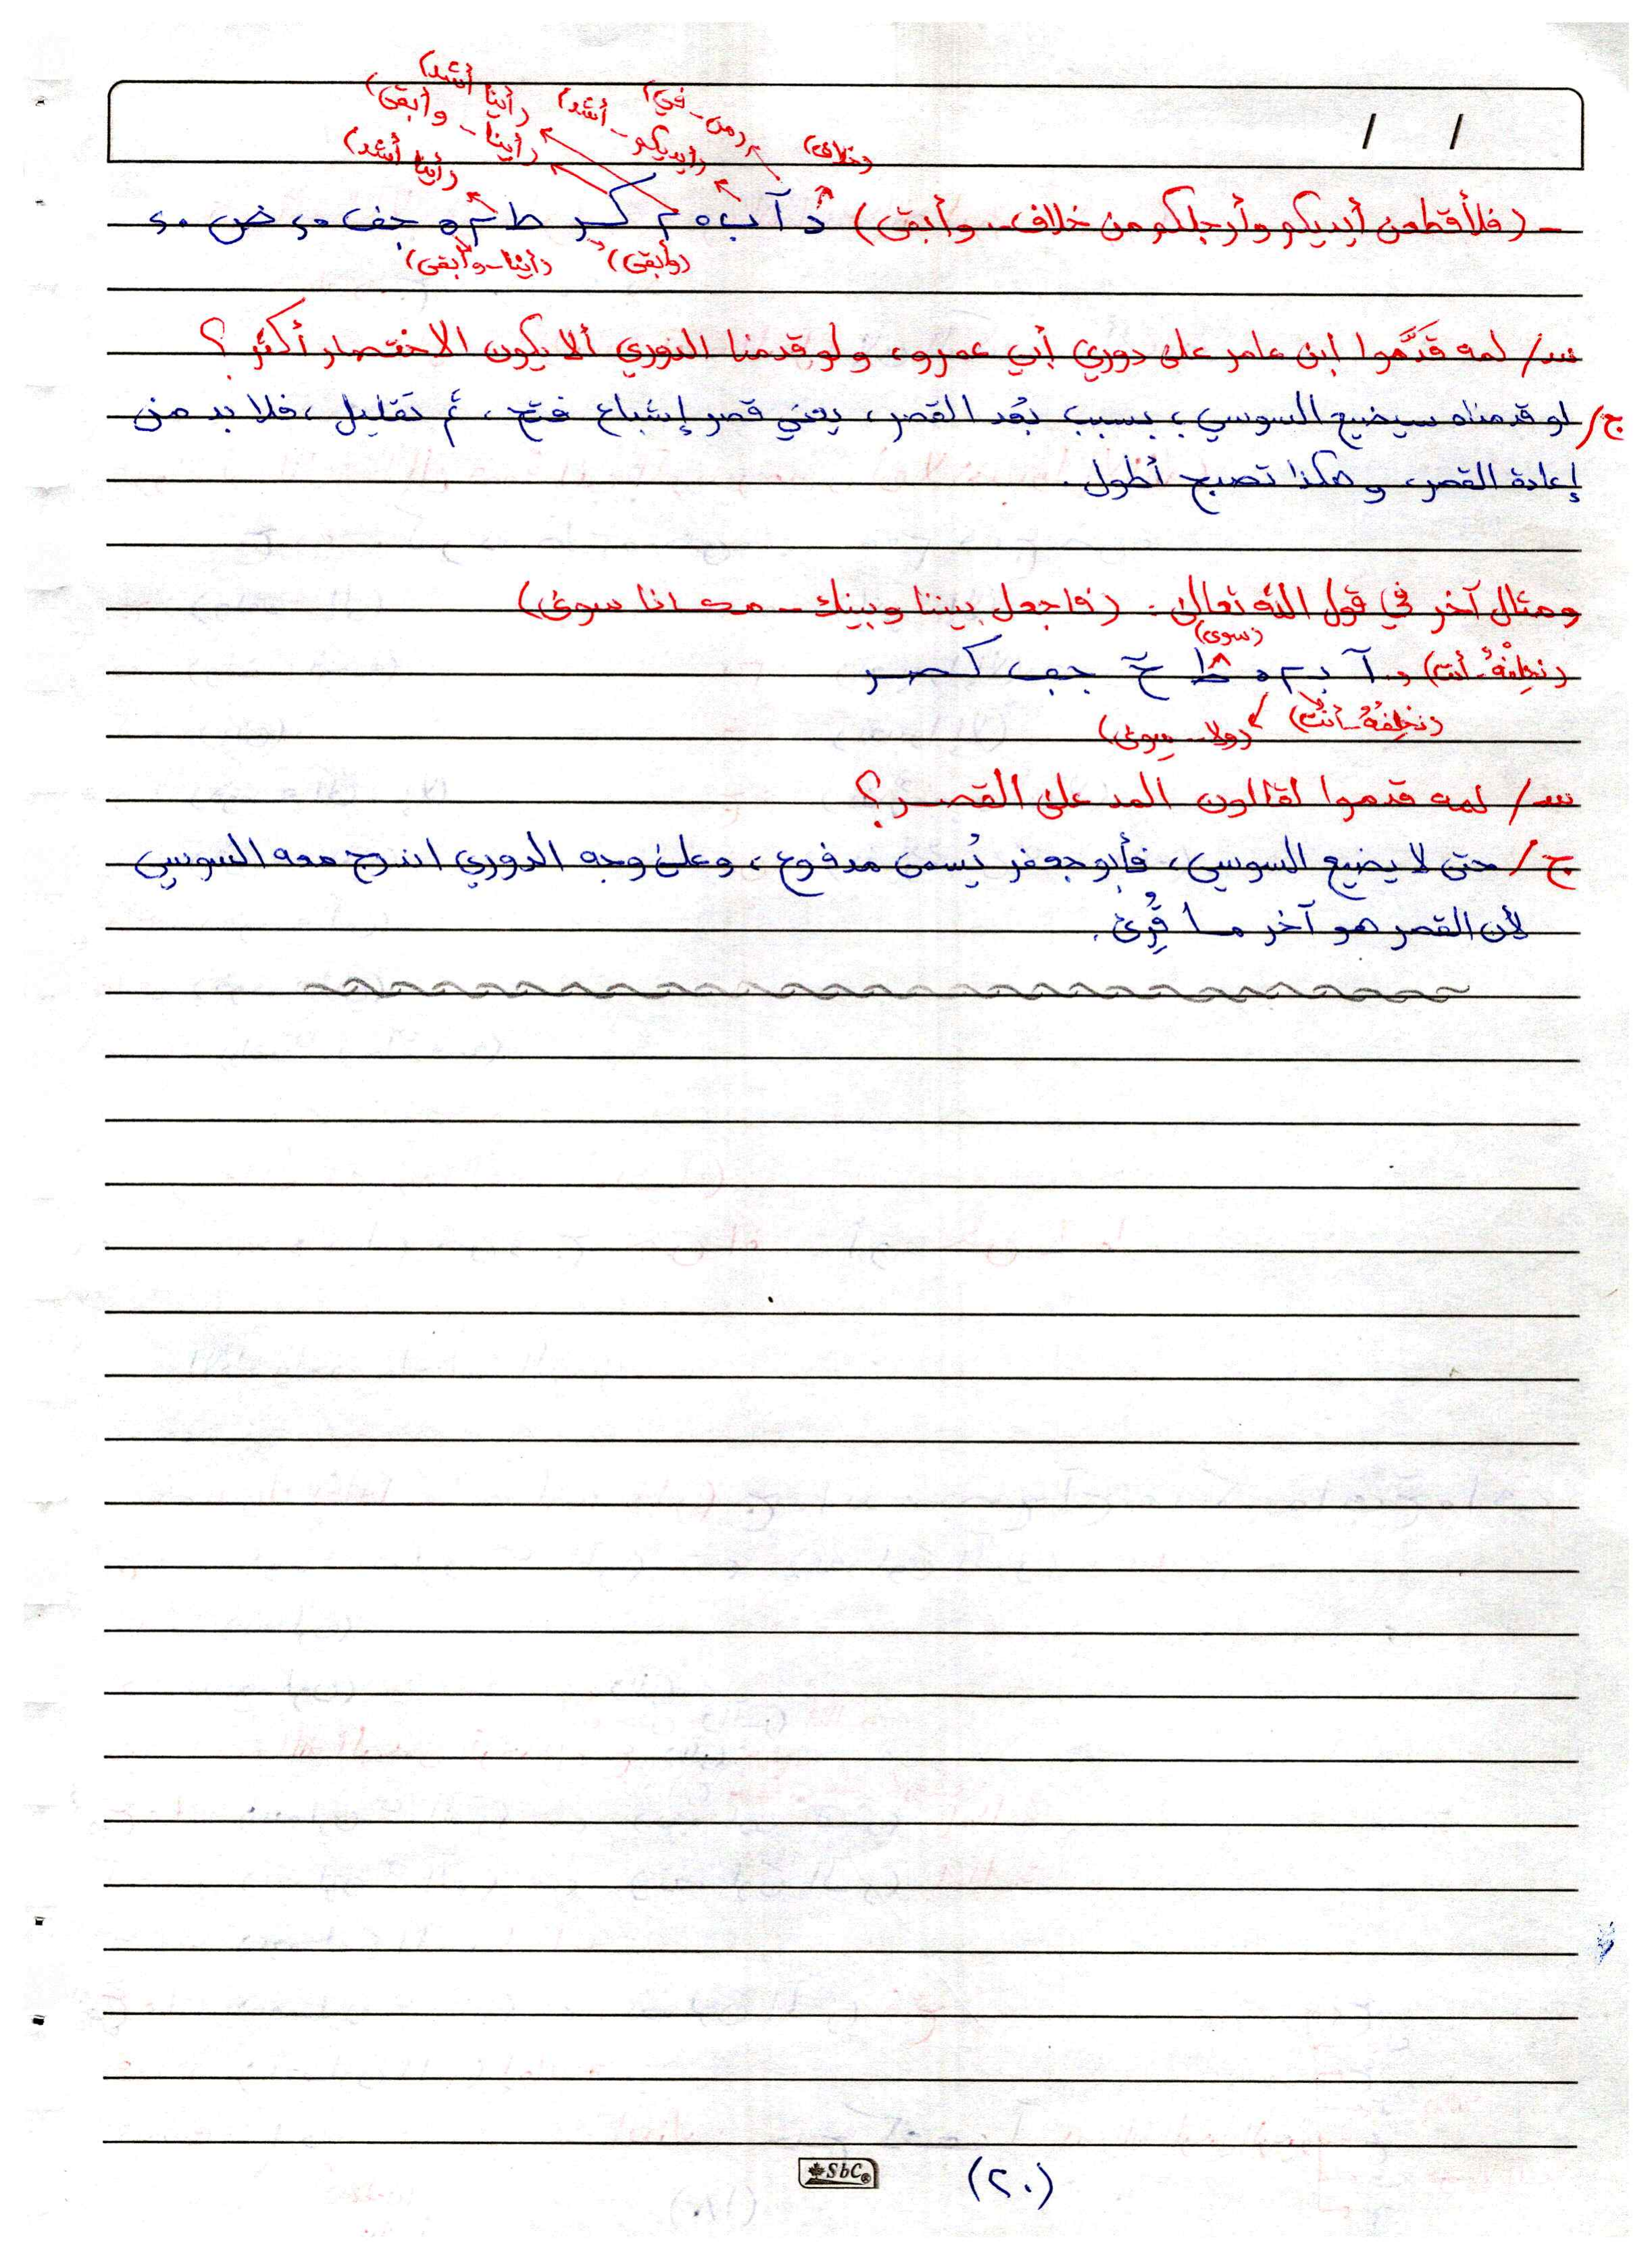 / /
(أينا أشد)
(من - في) (أيديكم - أشد) (أينا - وأبقى)
(خلاف) (أينا أشد)
- (فلأقطعن أيديكم وأرجلكم من خلاف .. وأبقى)
(وأبقى) (أينا - وأبقى)
س/ لمه قدَّموا ابن عامر على دوري أبي عمرو، ولو قدمنا الدوري ألا يكون الاختصار أكثر؟
ج/ لو قدمناه سيضيع السوسي، بسبب بُعد القصر، يعني قصر إشباع فتح، ثم تقليل، فلا بد من
إعادة القصر، وهكذا تصبح أطول.
ومثال آخر في قول الله تعالى: (فاجعل بيننا وبينك .. مكانا سوى)
(سوى)
(نخلفْهُ أنت)
(نخلفُهُ - أنت) (ولا .. سِوى)
س/ لمه قدموا لقالون المد على القصر؟
ج/ حتى لا يضيع السوسي، فأبو جعفر يُسمى مدفوع، وعلى وجه الدوري اندرج معه السوسي
لأن القصر هو آخر ما قُرِئ.
SbC®
(٢٠)